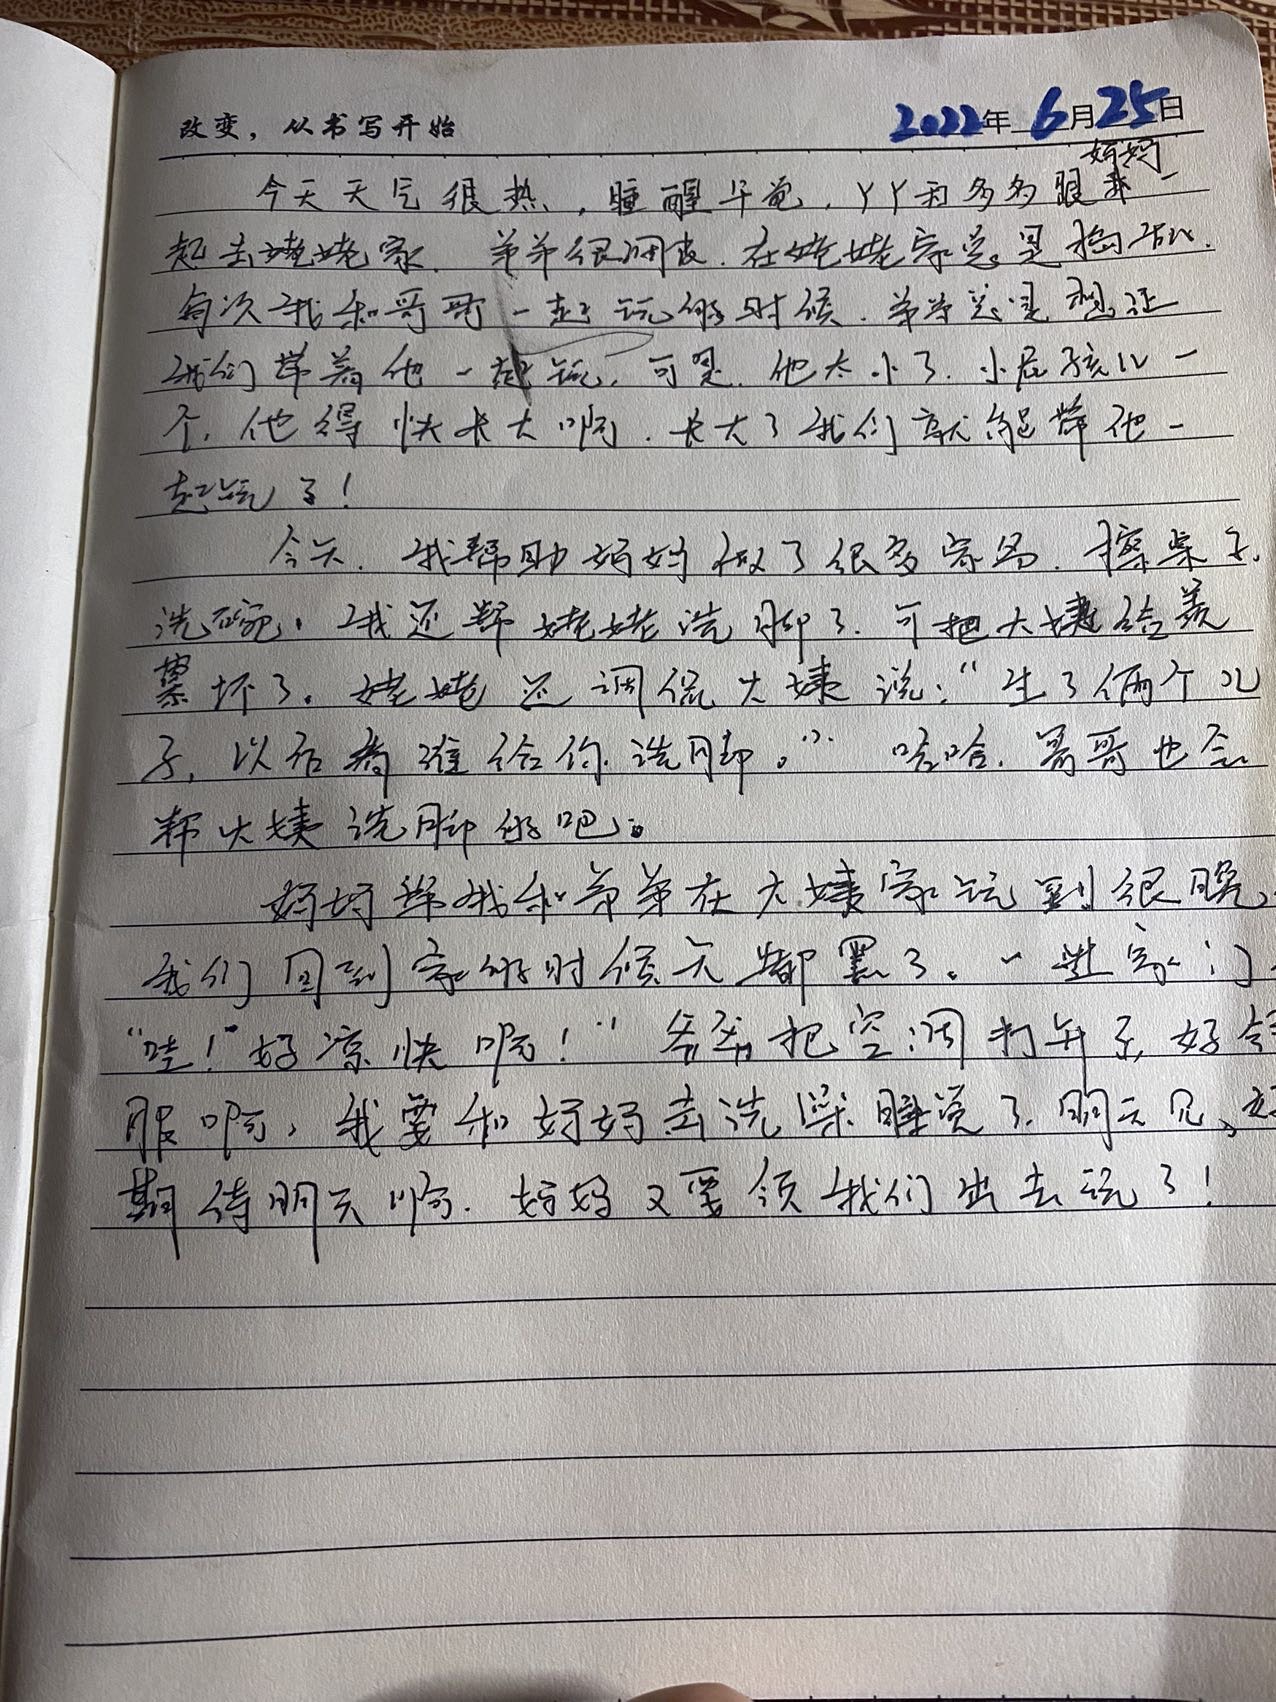 改变，从书写开始
2022年 6月25日
妈妈
今天天气很热，睡醒午觉，丫丫和多多跟我一
起去姥姥家。弟弟很调皮，在姥姥家总是捣乱。
每次我和哥哥一起玩的时候，弟弟总是想让
我们带着他一起玩，可是，他太小了，小屁孩儿一
个，他得快长大啊，长大了我们就能带他一
起玩了！
今天，我帮助妈妈做了很多家务，擦桌子，
洗碗，我还帮姥姥洗脚了，可把大姨给羡
慕坏了。姥姥还调侃大姨说：“生了俩个儿
子，以后看谁给你洗脚。” 哈哈，哥哥也会
帮大姨洗脚的吧。
妈妈带我和弟弟在大姨家玩到很晚，
我们回到家的时候天都黑了。一进家门，
“哇！”好凉快啊！” 爷爷把空调打开了，好舒
服啊，我要和妈妈去洗澡睡觉了，明天见，好
期待明天啊，妈妈又要领我们出去玩了！